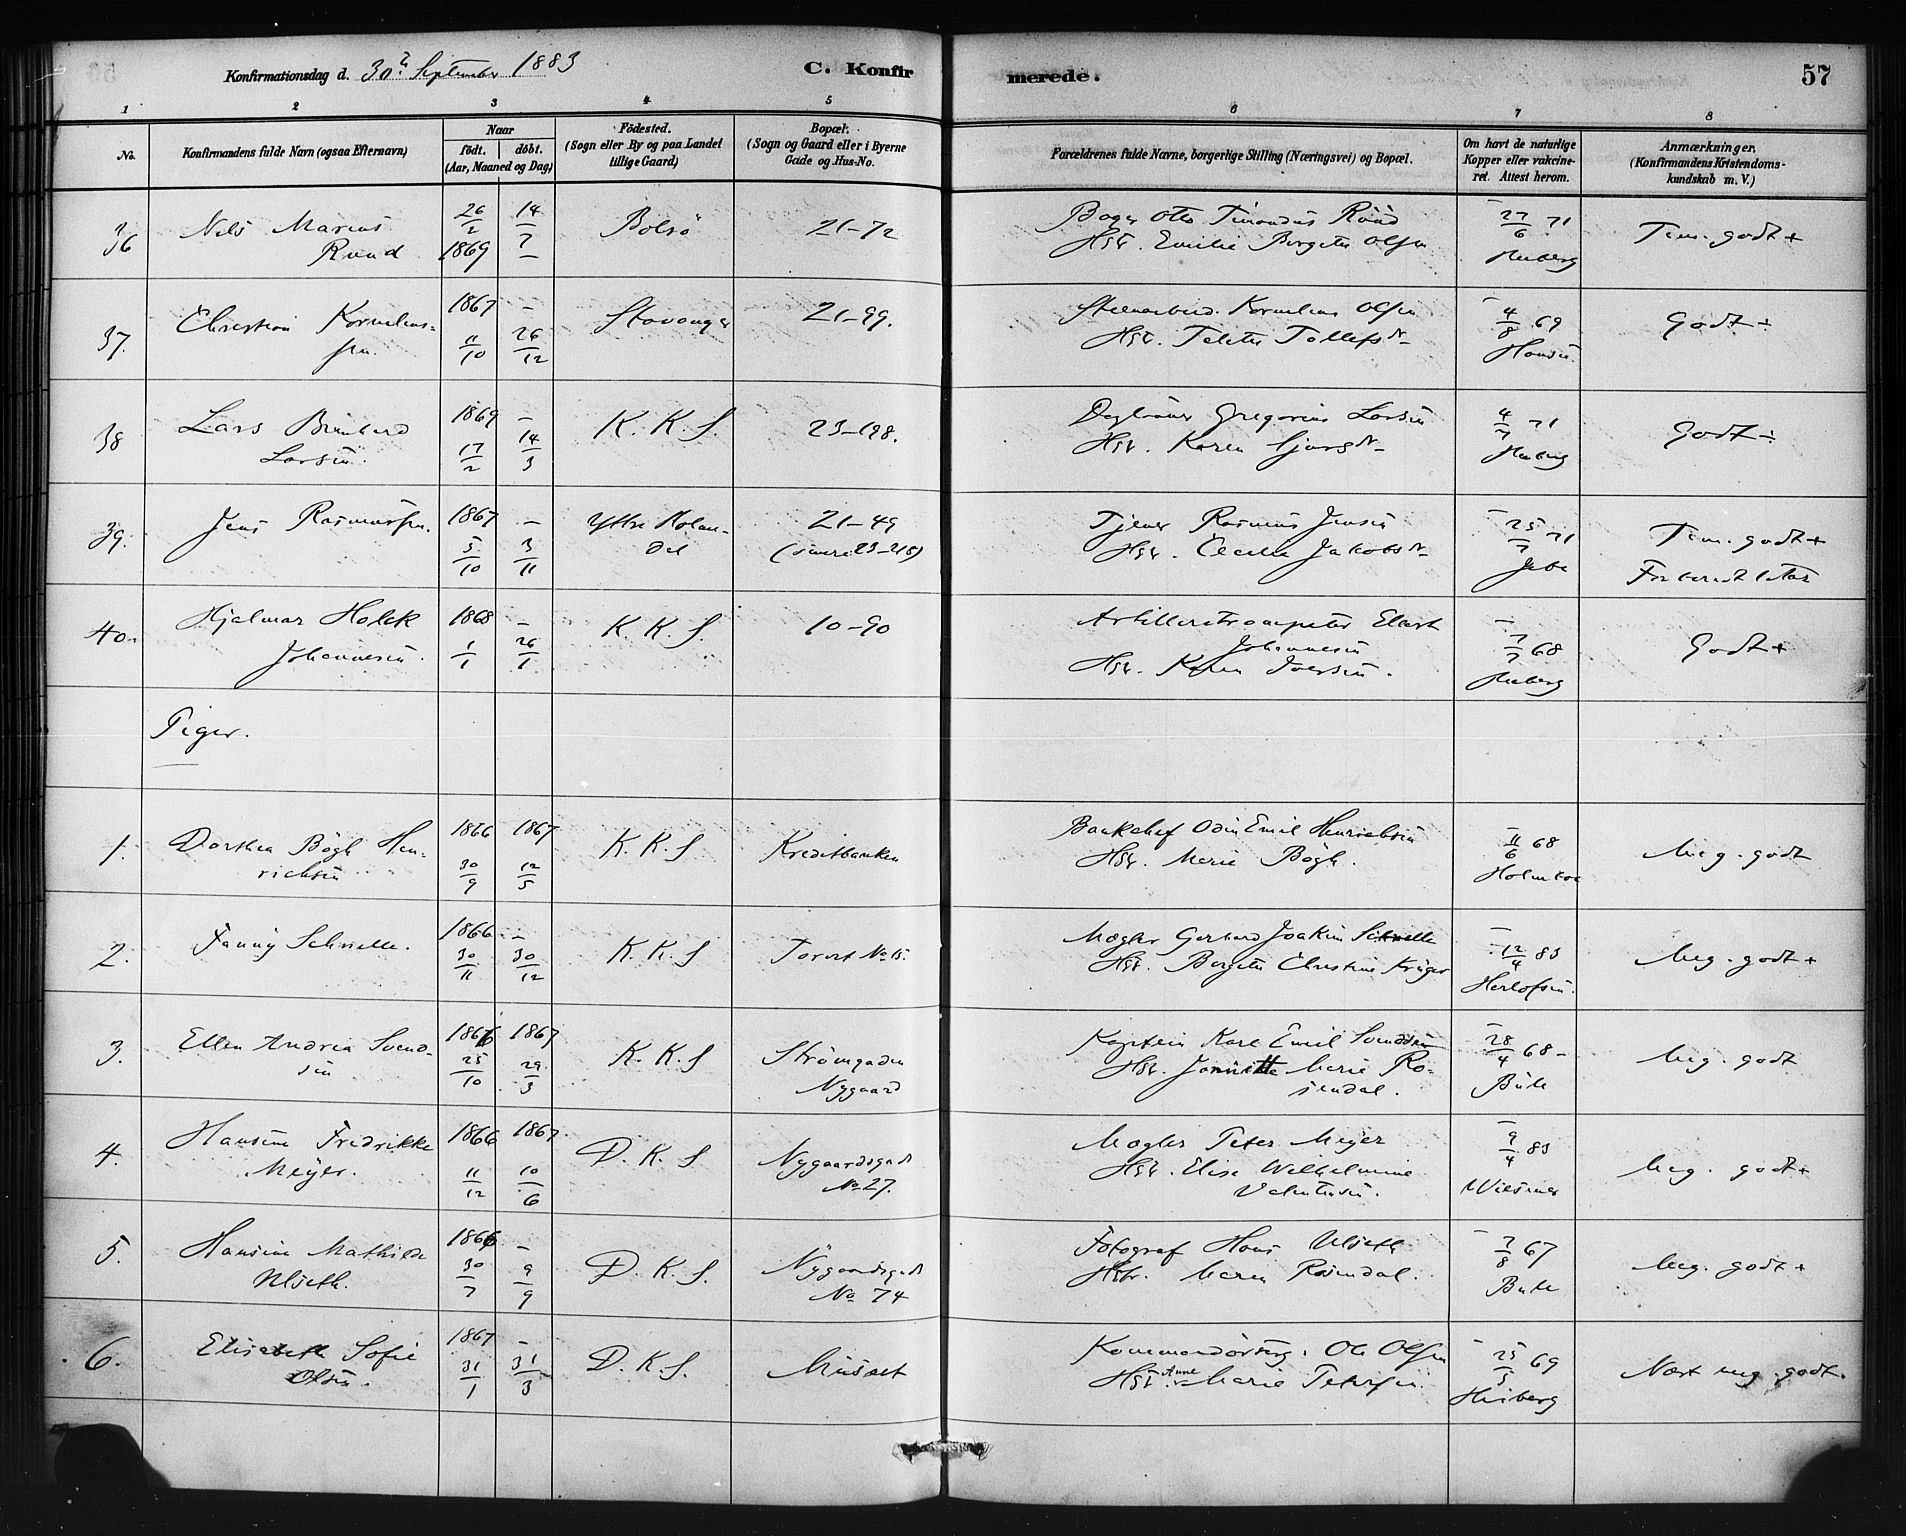 Konfirmationsdag d. 30te September 1883
C. Konfirmerede.
57
1 2 3 4 5 6 7 8
No.
Konfirmandens fulde Navn (ogsaa Efternavn)
Naar
födt. döbt.
(Aar, Maaned og Dag)
Födested.
(Sogn eller By og paa Landet
tillige Gaard)
Bopæl.
(Sogn og Gaard eller i Byerne
Gade og Hus-No.
Forældrenes fulde Navne, borgerlige Stilling (Næringsvei) og Bopæl.
Om havt de naturlige
Kopper eller vakcine-
ret. Attest herom.
Anmærkninger.
(Konfirmandens Kristendoms-
kundskab m. V.)
36 Nils Marius
Ruud
26/2 1869
14/7 –
Bolsö
21–72
Bager Otto Ruud
Hst. Emilie Birgitte Olsen
27/6 71
Heiberg
Tem. godt +
37. Christian Kornelius-
sen
1867 11/10
– 26/12
Stavanger
21–99.
Kornelius Olsen
Hst. Tollefsdr
4/8 69
Hansen
Godt ÷
38 Lars Bernhard
Larsen
1869 17/2
– 14/3
K. K. S.
23–198.
Gregorius Larsen
Hst. Karen
4/7 71
Heiberg
Godt ÷
39. Jens Rasmussen.
1867 5/10
– 3/11
Yttre Holan-
dal
21–49
Tjener Rasmus Jensen
Hst. Cecilie Jakobsdr
25/7 71
Tem. godt +
40. Hjalmar Holck
Johannesen.
1868 1/1
– 26/1
K. K. S.
10–90
Artilleritrompeter Elert
Johannesen
Hst. Karen Iversen.
7/7 68
Heiberg
Godt +
Piger.
1. Dorthea Bögh Hen-
richsen
1866 30/9
1867 12/5
K. K. S
Kreditbanken
Bankchef Odin Emil Henrichsen
Hst. Marie Bögh.
11/6 68
Meg. godt
2. Fanny Schnelle.
1866 30/11
– 30/12
K. K. S
Torvet No 15.
Mægler Gerhard Joakim Schnelle
Hst. Birgitte Christine Krüger
12/4 83
Herlofsen.
Meg. godt +
3. Ellen Andrea Svend-
sen
1866 25/10
1867 29/3
K. K. S
Strömgaden
Nygaard
Kaptein Karl Emil Svendsen
Hst. Jannette Marie Ro-
sendal.
28/4 68
Meg. godt
4. Hansine Fredrikke
Meyer.
1866 11/12
1867 10/6
D. K. S
Nygaardsgade
No 27.
Mægler Peter Meyer
Hst. Elisa Wilhelmine
Valentinsen.
9/4 83
Wiesener
Meg. godt +
5. Hansine Mathilde
Ulseth.
1866 30/7
– 9/9
D. K. S.
Nygaardsgade
No 74
Fotograf Hans Ulseth
Hst. Maren Rosendal.
7/8 67
Meg. godt +
6. Elisabeth Sofie
Olsen.
1867 31/1
– 31/3
D. K. S.
Museet
Ole Olsen
Hst. Anne Marie Petersen
25/5 69
Heiberg
Næst meg godt.